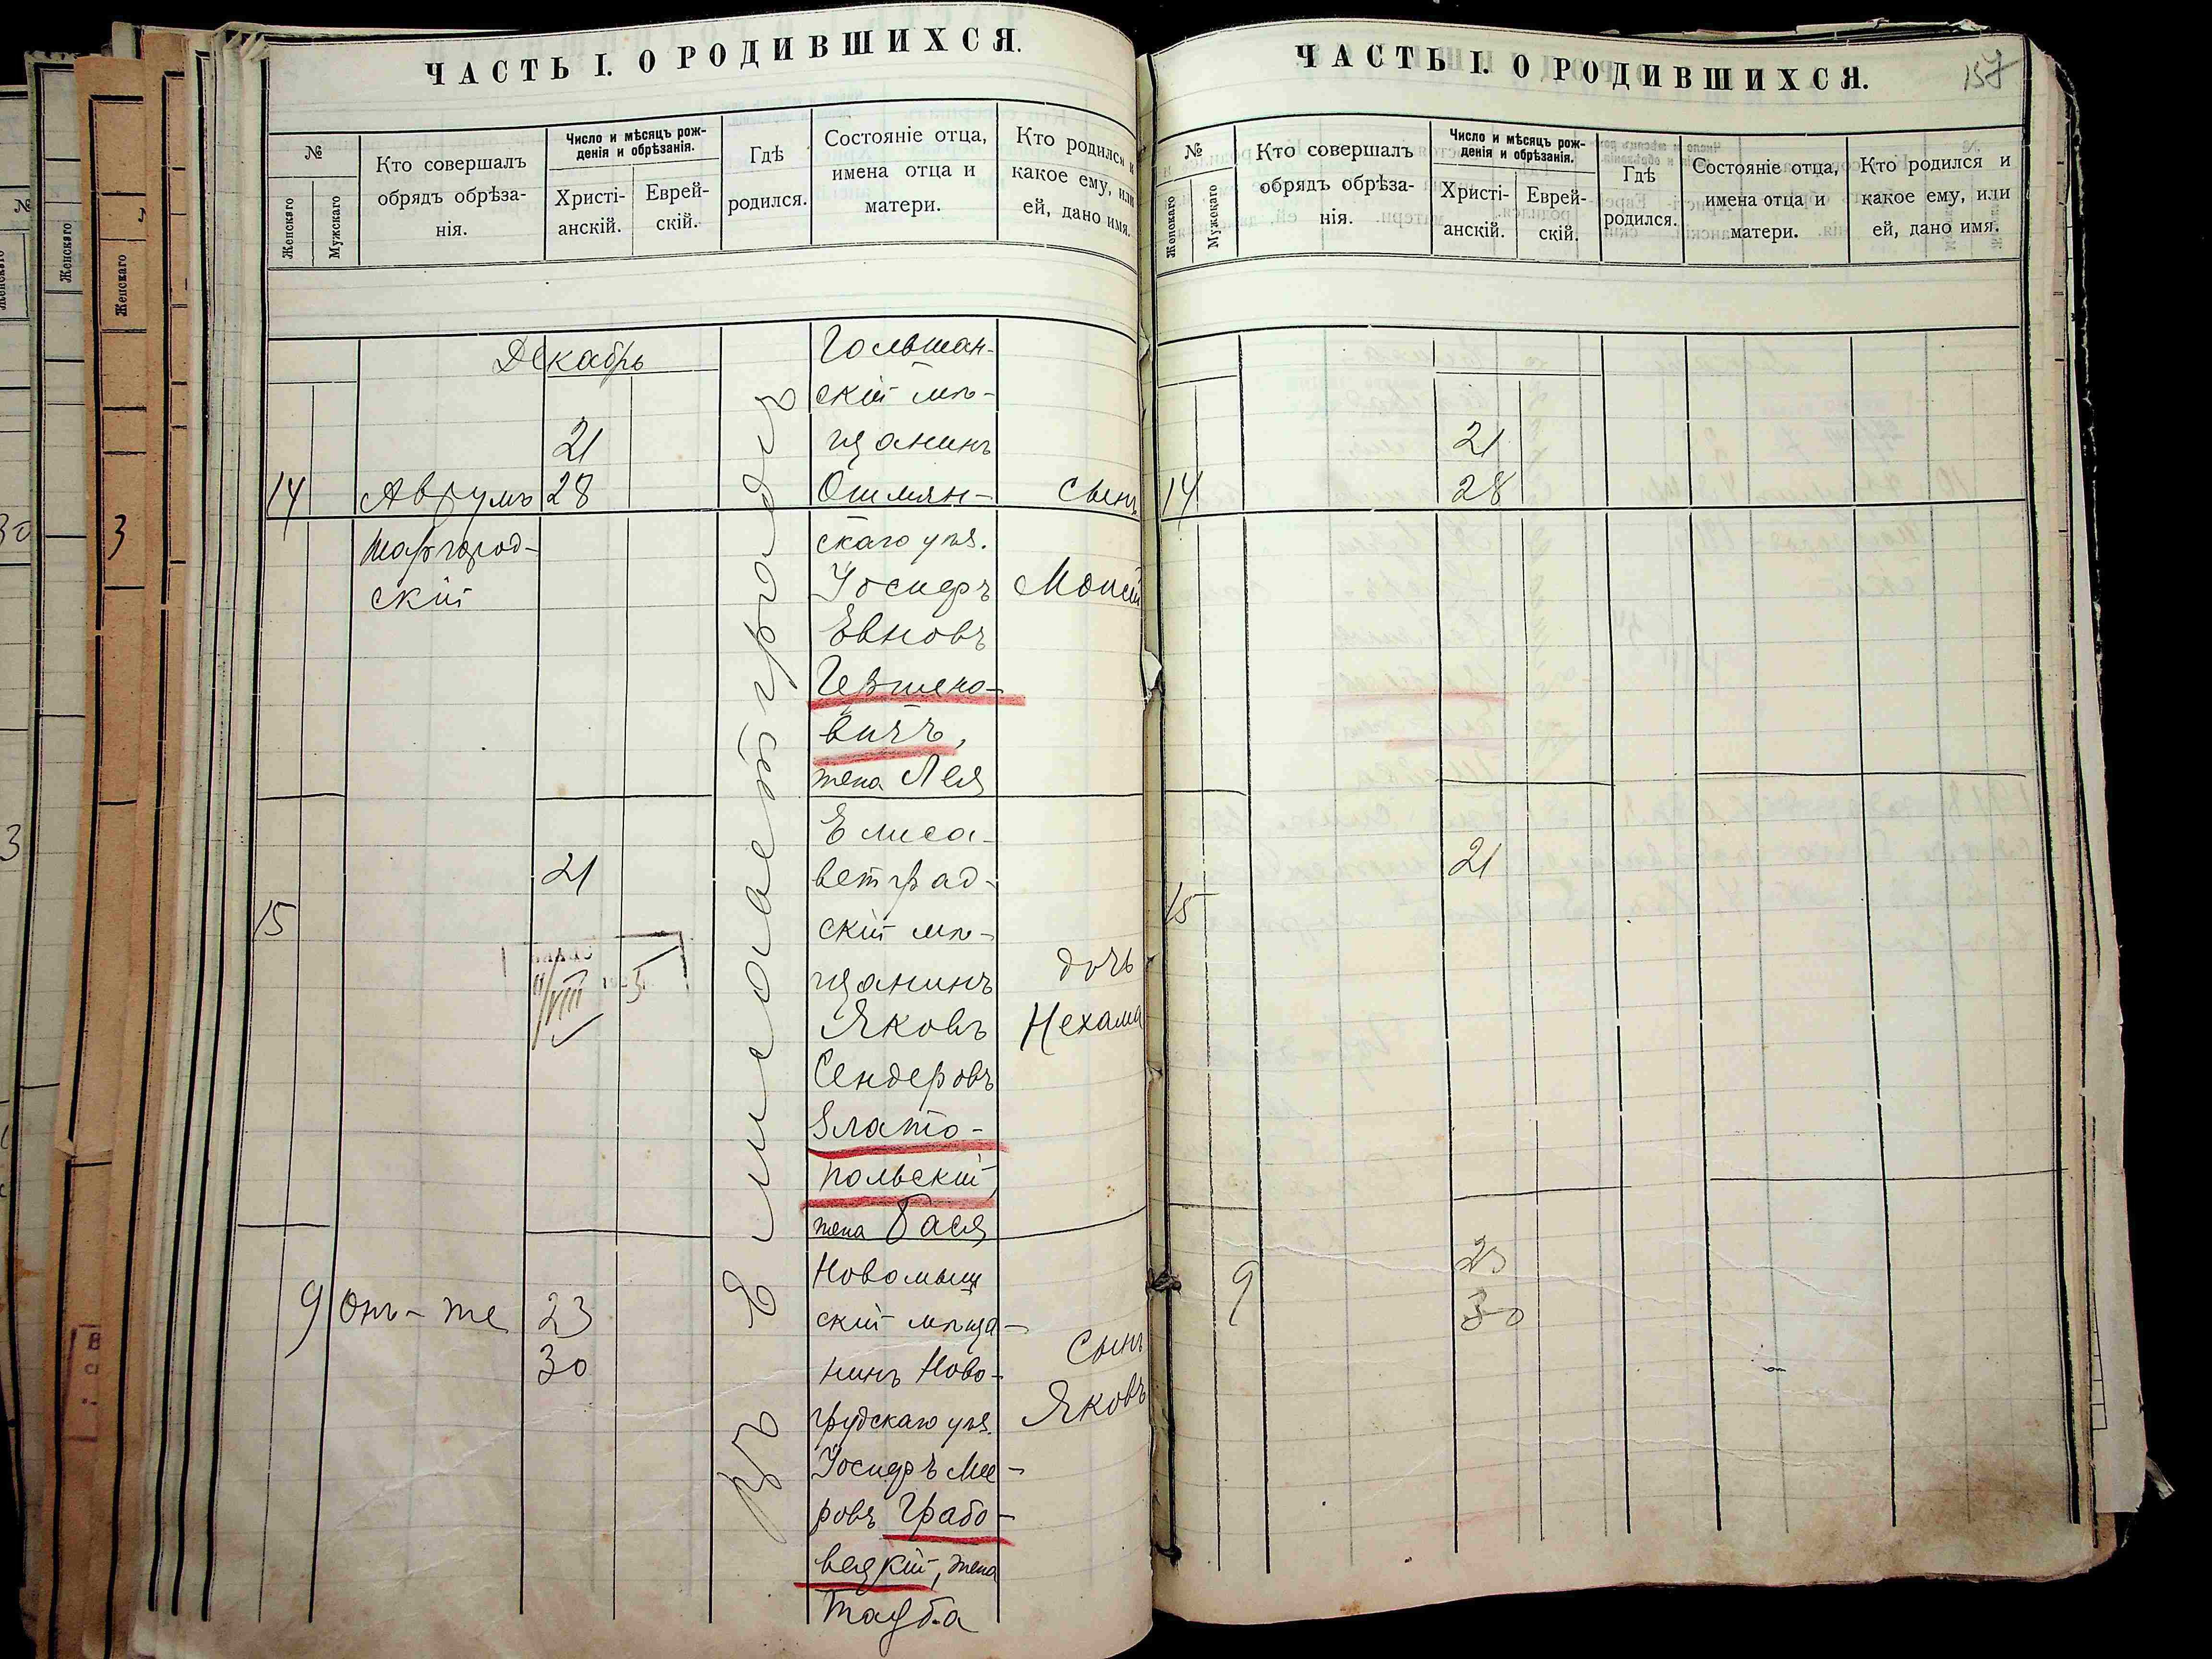 ЧАСТЬ I. О РОДИВШИХСЯ.
№
Женскаго
Мужскаго
Кто совершалъ
обрядъ обрѣза-
нія.
Число и мѣсяцъ рож-
денія и обрѣзанія.
Христі-
анскій.
Еврей-
скій.
Гдѣ
родился.
Состояніе отца,
имена отца и
матери.
Кто родился и
какое ему, или
ей, дано имя.
Декабрь
14
Аврумъ
Шаргород-
скій
21
28
Въ Елисаветградѣ
Гольшан-
скій мѣ-
щанинъ
Ошмян-
скаго уѣз.
Іосифъ
Евновъ
Гершено-
вичъ,
жена Лея
сынъ
Моисей
15
21
Елиса-
ветград-
скій мѣ-
щанинъ
Яковъ
Сендеровъ
Злато-
польскій,
жена Бася
дочь
Нехама
9
Онъ-же
23
30
Новомыш
скій мѣща-
нинъ Ново-
грудскаго уѣз.
Іосифъ Мее-
ровъ Грабо-
вецкій, жена
Тауба
сынъ
Яковъ
ЧАСТЬ I. О РОДИВШИХСЯ.
157
№
Женскаго
Мужскаго
Кто совершалъ
обрядъ обрѣза-
нія.
Число и мѣсяцъ рож-
денія и обрѣзанія.
Христі-
анскій.
Еврей-
скій.
Гдѣ
родился.
Состояніе отца,
имена отца и
матери.
Кто родился и
какое ему, или
ей, дано имя.
14
21
28
15
21
9
23
30